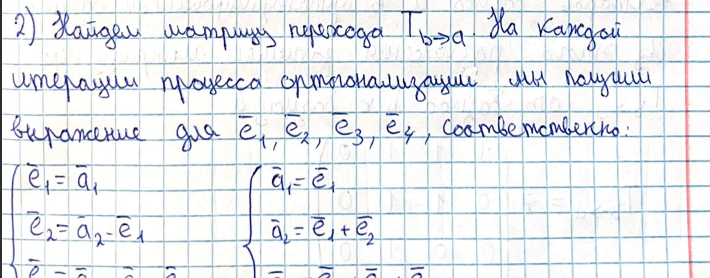 2) Найдем матрицу перехода T_b→a. На каждой
итерации процесса ортогонализации мы получили
выражение для ē₁, ē₂, ē₃, ē₄, соответственно:
ē₁ = ā₁ ā₁ = ē₁
ē₂ = ā₂ - ē₁ ā₂ = ē₁ + ē₂